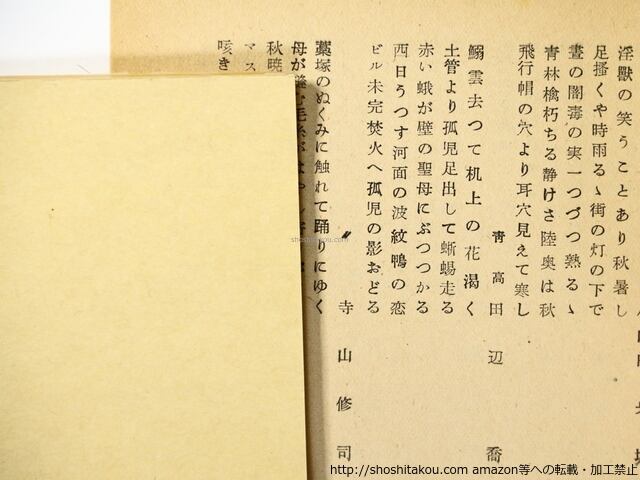 淫獸の笑うことあり秋暑し
足搔くや時雨るゝ街の灯の下で
晝の闇毒の実一つづつ熟るゝ
青林檎朽ちる静けさ陸奥は秋
飛行帽の穴より耳穴見えて寒し
靑高 田辺 喬
鰯雲去つて机上の花渴く
土管より孤児足出して蜥蜴走る
赤い蛾が壁の聖母にぶつつかる
西日うつす河面の波紋鴨の恋
ビル未完焚火へ孤児の影おどる
〃 寺山修司
藁塚のぬくみに触れて踊りにゆく
母が
秋曉
マス
咳き
shoshitakou.com
http://shoshitakou.com amazon等への転載・加工禁止